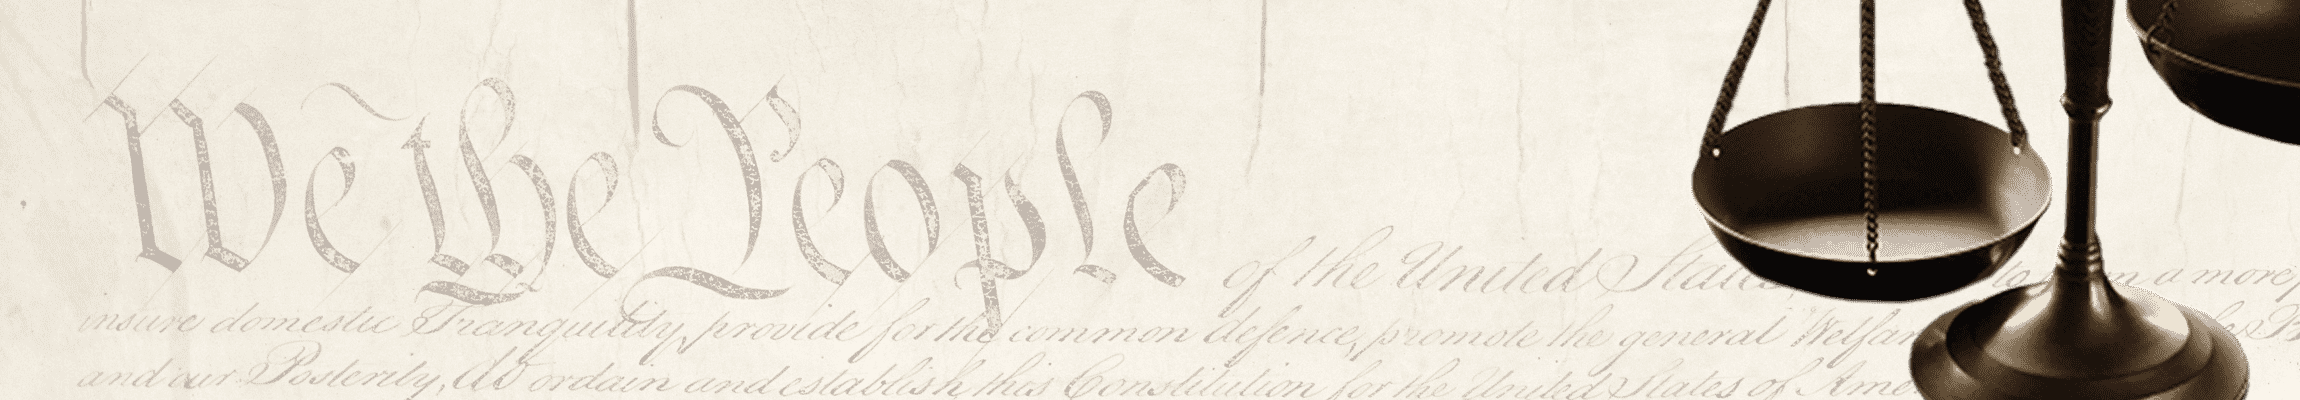 We the People of the United States, to form a more
insure domestic Tranquility, provide for the common defence, promote the general Welfare
and our Posterity, do ordain and establish this Constitution for the United States of Ame